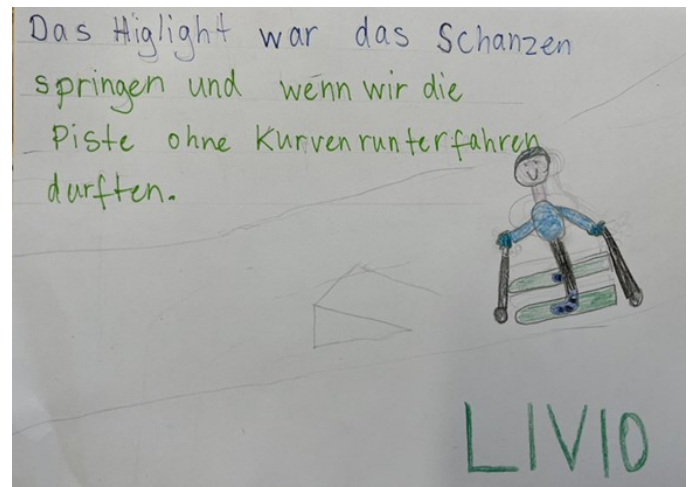 Das Higlight war das Schanzen
springen und wenn wir die
Piste ohne Kurven runterfahren
durften.
LIVIO